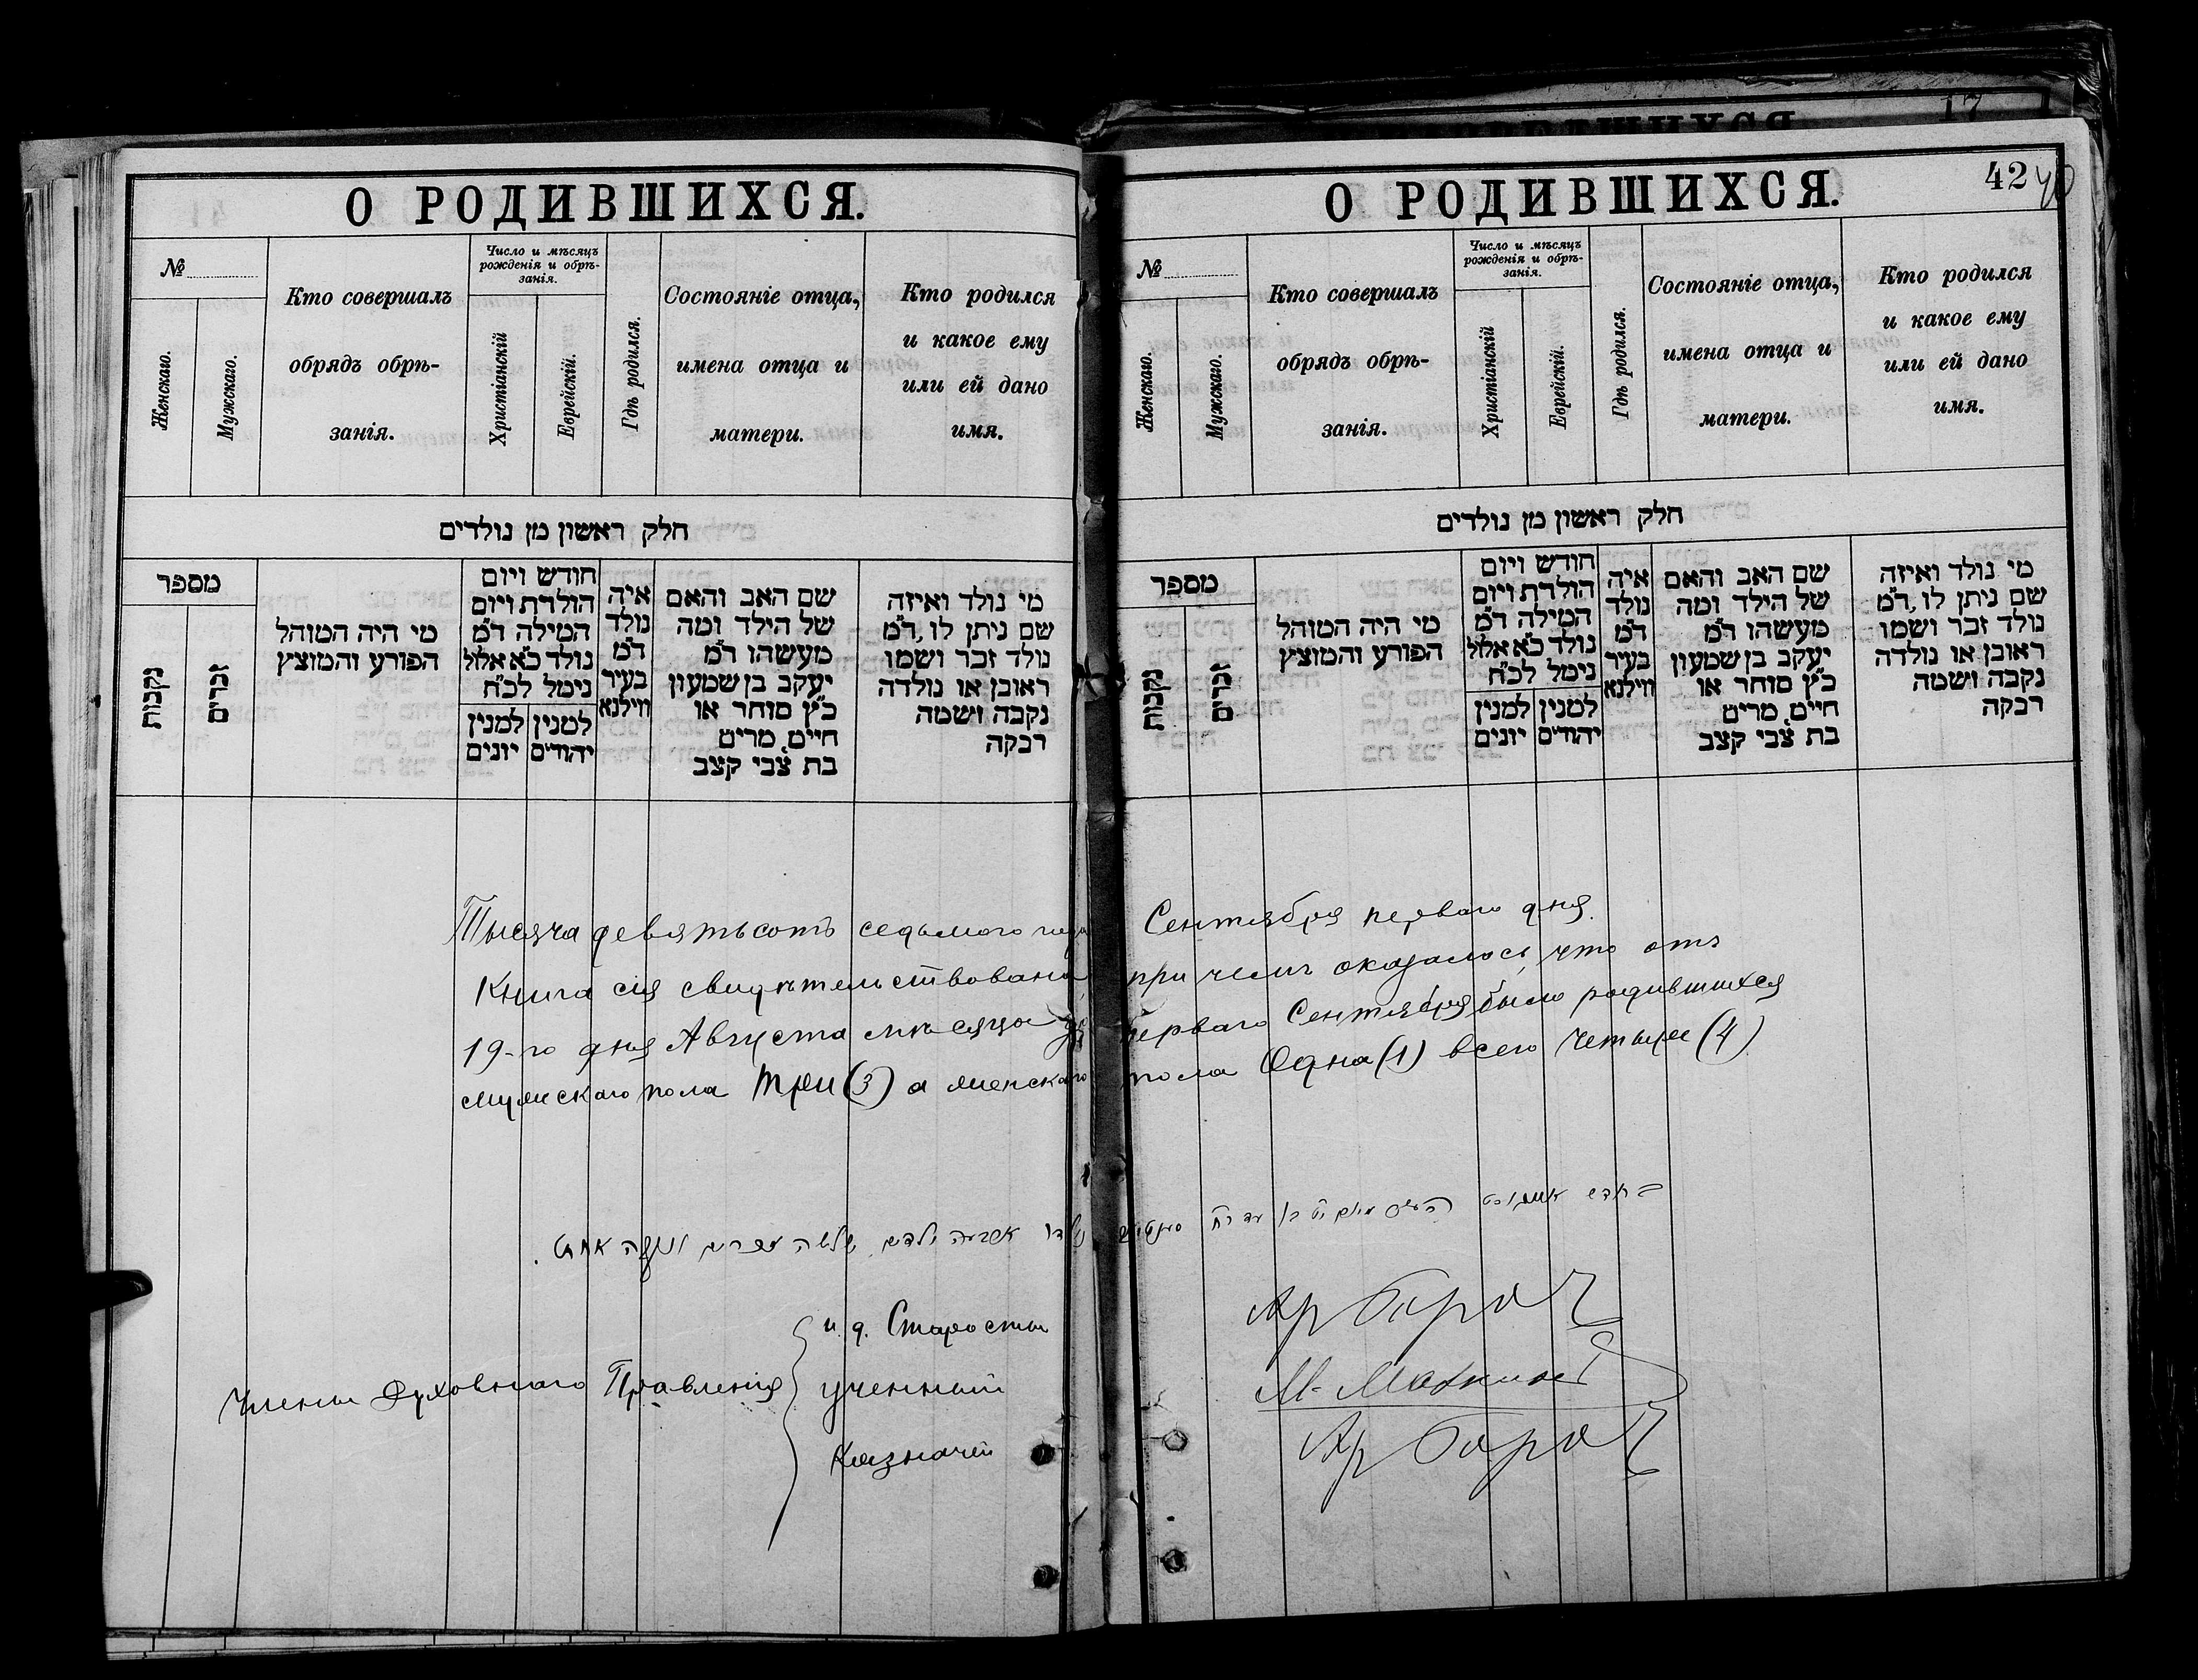 17
О РОДИВШИХСЯ.
№
Женскаго.
Мужскаго.
Кто совершалъ
обрядъ обрѣ-
занія.
Число и мѣсяцъ
рожденія и обрѣ-
занія.
Христіанскій
Еврейскій.
Гдѣ родился.
Состояніе отца,
имена отца и
матери.
Кто родился
и какое ему
или ей дано
имя.
חלק ראשון מן נולדים
מספר
נקבות
זכרים
מי היה המוהל
הפורע והמוצץ
חודש ויום
הולדת ויום
המילה ד״מ
נולד כ״א אלול
נימל לכ״ח
למנין
יונים
למנין
יהודים
איה
נולד
ד״מ
בעיר
ווילנא
שם האב והאם
של הילד ומה
מעשהו ד״מ
יעקב בן שמעון
כ״ץ סוחר או
חיים, מרים
בת צבי קצב
מי נולד ואיזה
שם ניתן לו, ד״מ
נולד זכר ושמו
ראובן או נולדה
נקבה ושמה
רבקה
42
40
О РОДИВШИХСЯ.
№
Женскаго.
Мужскаго.
Кто совершалъ
обрядъ обрѣ-
занія.
Число и мѣсяцъ
рожденія и обрѣ-
занія.
Христіанскій
Еврейскій.
Гдѣ родился.
Состояніе отца,
имена отца и
матери.
Кто родился
и какое ему
или ей дано
имя.
חלק ראשון מן נולדים
מספר
נקבות
זכרים
מי היה המוהל
הפורע והמוצץ
חודש ויום
הולדת ויום
המילה ד״מ
נולד כ״א אלול
נימל לכ״ח
למנין
יונים
למנין
יהודים
איה
נולד
ד״מ
בעיר
ווילנא
שם האב והאם
של הילד ומה
מעשהו ד״מ
יעקב בן שמעון
כ״ץ סוחר או
חיים, מרים
בת צבי קצב
מי נולד ואיזה
שם ניתן לו, ד״מ
נולד זכר ושמו
ראובן או נולדה
נקבה ושמה
רבקה
Тысяча девятьсотъ седьмого года Сентября перваго дня.
Книга сія свидѣтельствована при чемъ оказалось, что отъ
19-го дня Августа мѣсяца до перваго Сентября было родившихся
мужскаго пола три (3) а женскаго пола Одна (1) всего четыре (4)
ארבעה ילדים, שלשה זכרים ונקבה אחת.
Члены Духовнаго Правленія
и. д. Старосты
ученный
Казначей